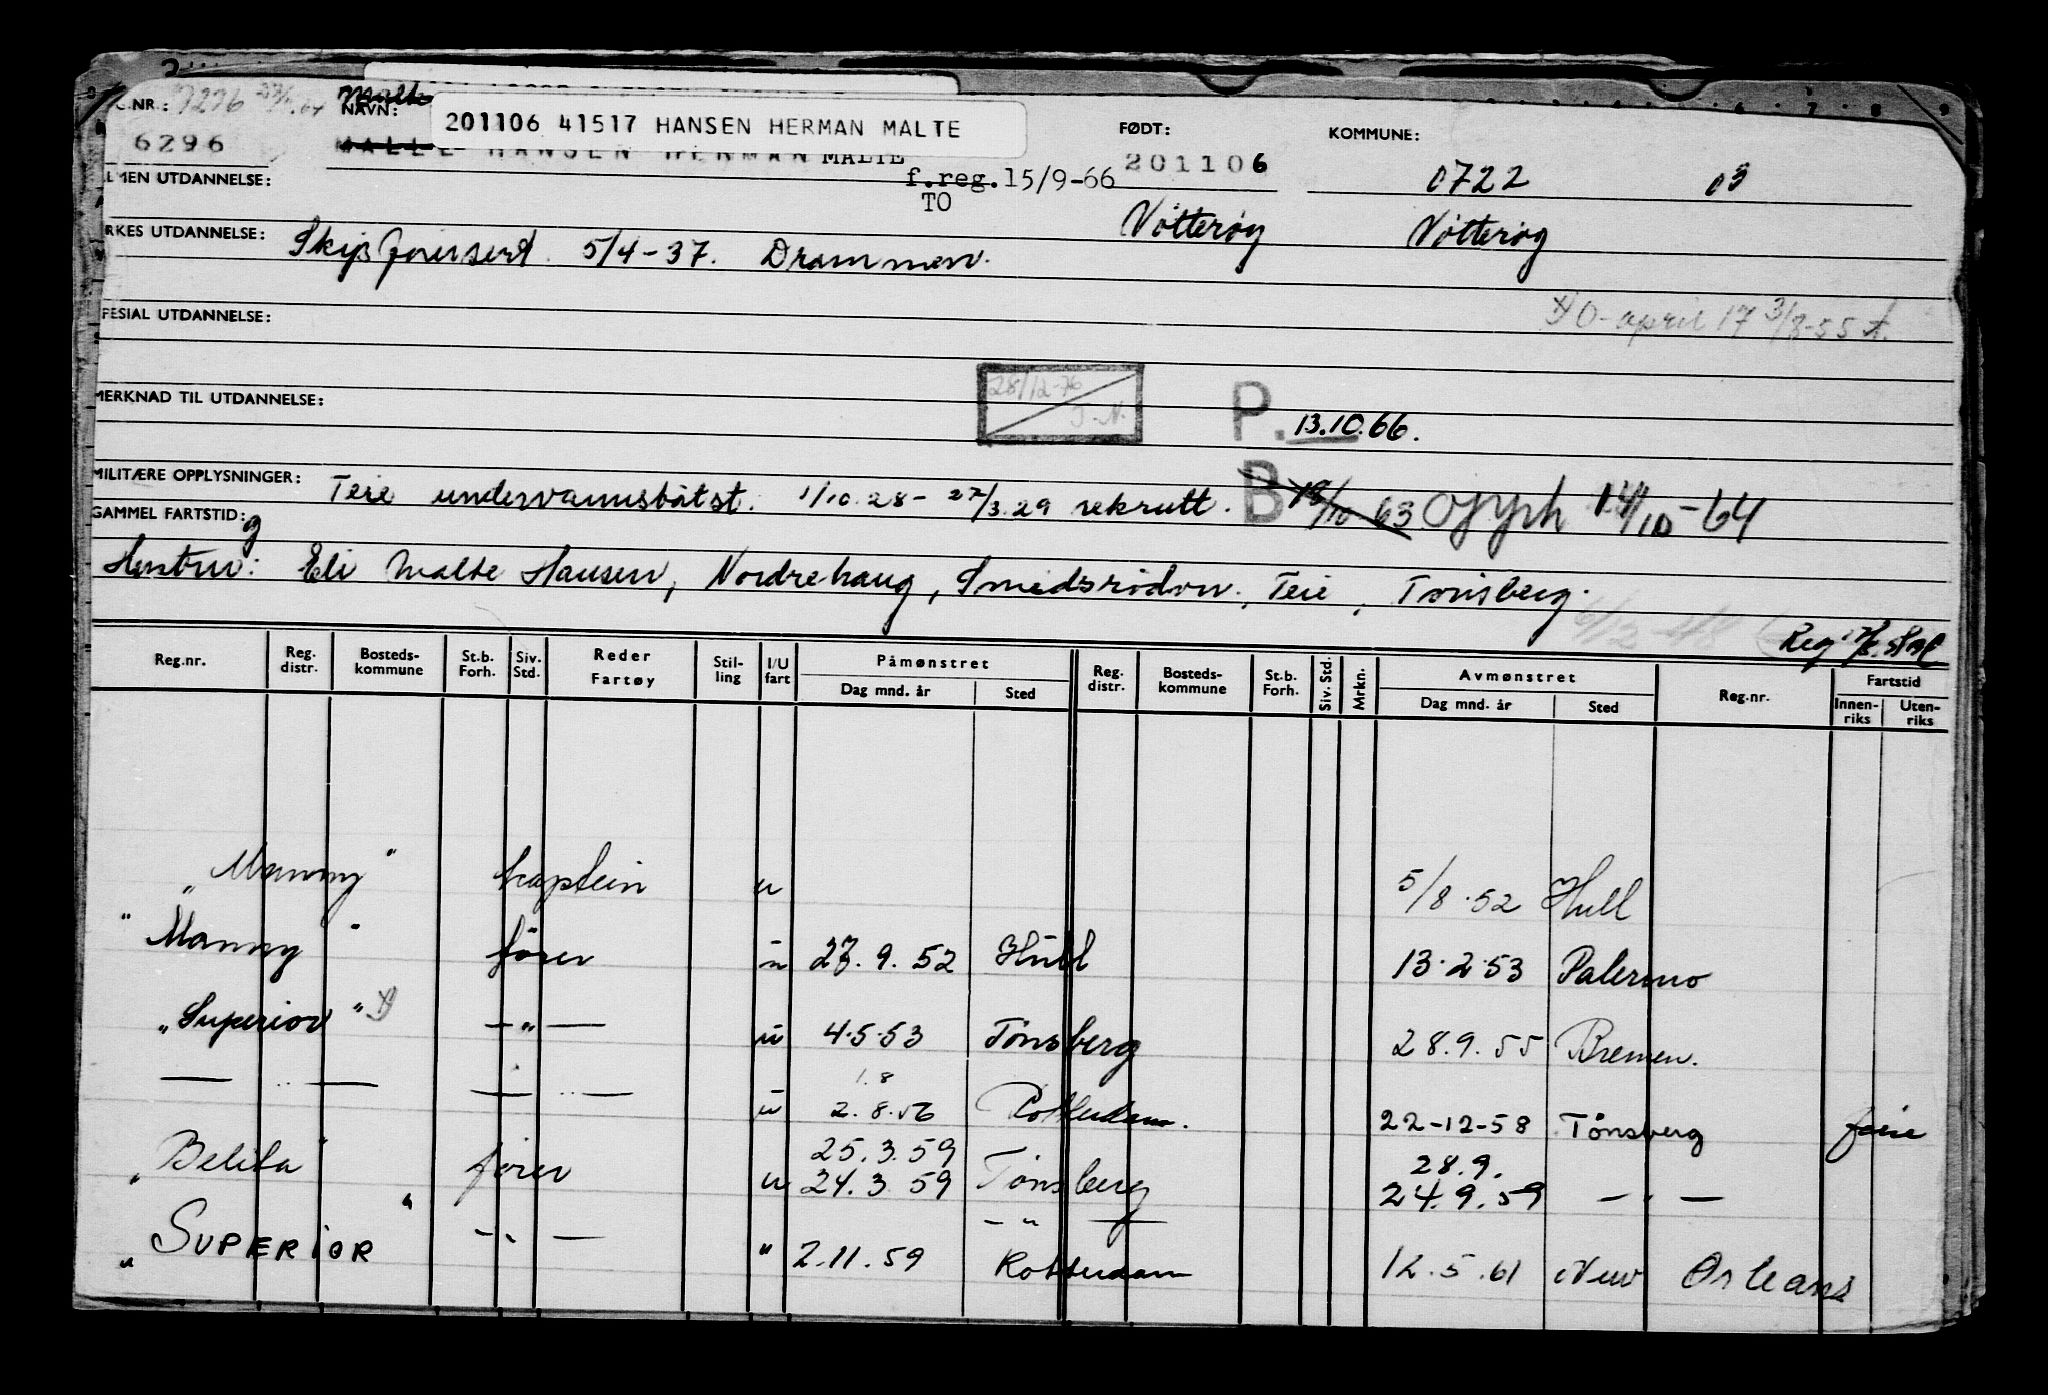 C.NR.: 7276 NAVN: Malte
201106 41517 HANSEN HERMAN MALTE
FØDT: KOMMUNE:
6296 HANSEN HERMAN MALTE 201106 0722 03
f.reg. 15/9-66
TO
LMEN UTDANNELSE:
Nøtterøy Nøtterøy
RKES UTDANNELSE: Skipsførersert. 5/4-37. Drammen.
PESIAL UTDANNELSE: O-april 17 3/8-55
MERKNAD TIL UTDANNELSE: 28/12-76 P. 13.10.66.
MILITÆRE OPPLYSNINGER: Teie undervannsbåtst. 1/10.28- 27/3.29 rekrutt. B 19/10-63 opph 14/10-64
GAMMEL FARTSTID:
Hustru: Eli Malte Hansen, Nordrehaug, Smedsrødvn., Teie, Tønsberg.
Reg.nr. Reg. distr. Bosteds-kommune St.b. Forh. Siv. Std. Reder Fartøy Stil-ling I/U fart Påmønstret Dag mnd. år Sted Reg. distr. Bosteds-kommune St.b. Forh. Siv. Std. Mrkn. Avmønstret Dag mnd. år Sted Reg.nr. Fartstid Innen-riks Uten-riks
"Manny" kaptein u 5/8.52 Hull
"Manny" fører u 27.9.52 Hull 13.2.53 Palermo
"Superior" —"— u 4.5.53 Tønsberg 28.9.55 Bremen.
—"— —"— u 1.8 2.8.56 Rotterdam. 22-12-58 Tønsberg ferie
25.3.59 28.9.
"Belita" fører u 24.3.59 Tønsberg 24.9.59 —"—
—"—
"SUPERIOR" —"— " 2.11.59 Rotterdam 12.5.61 New Orleans